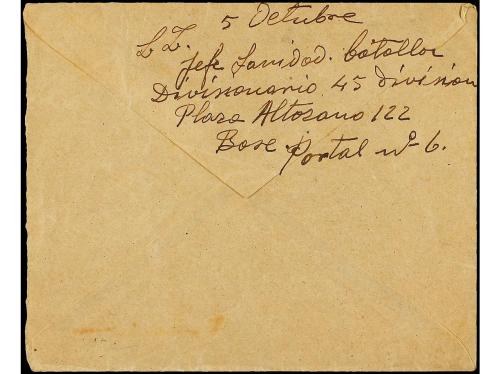 5 Octubre
L Z.
Jefe Sanidad. batallon
Divisionario 45 Division
Plaza Altozano 122
Base Postal nº 6.